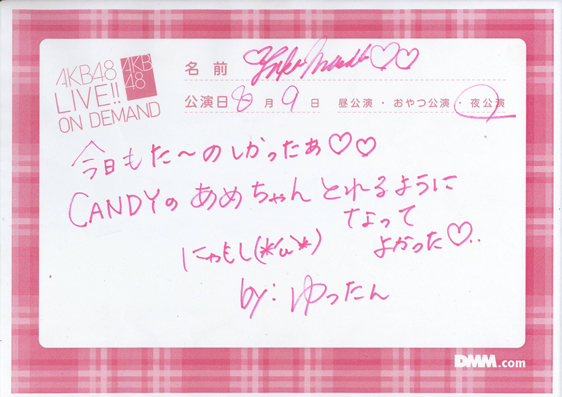 AKB48
LIVE!!
ON DEMAND
AKB
48
名前
公演日 8月9日 昼公演・おやつ公演・夜公演
今日もた〜のしかったぁ♡♡
CANDYのあめちゃんとれるように
なって
よかった♡..
にゃもし(*'ω'*)
by:ゆったん
DMM.com